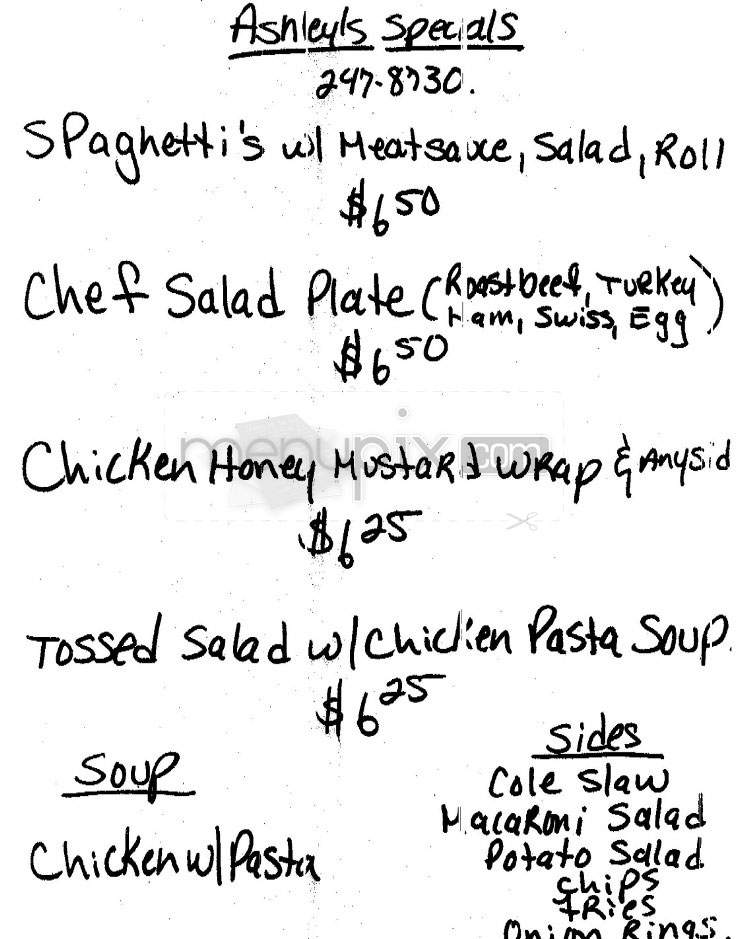 Ashley's Specials
247-8730.
Spaghetti's w/ Meatsauce, Salad, Roll
$6.50
Chef Salad Plate (Roastbeef, Turkey
Ham, Swiss, Egg)
$6.50
menupix.com
Chicken Honey Mustard Wrap & Anysid
$6.25
Tossed Salad w/ Chicken Pasta Soup.
$6.25
Soup
Chicken w/ Pasta
Sides
Cole Slaw
Macaroni Salad
Potato Salad
Chips
Fries
Onion Rings.